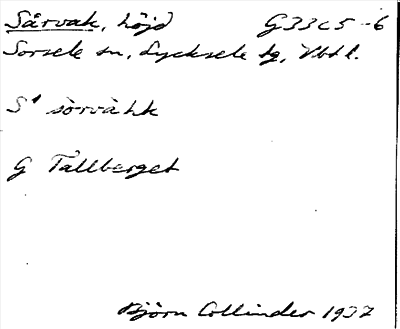 Sårvak, höjd G33c5-6
Sorsele sn, Lycksele lg, Vbtl.
S¹ sòrvàhk
G Tallberget
Björn Collinder 1937